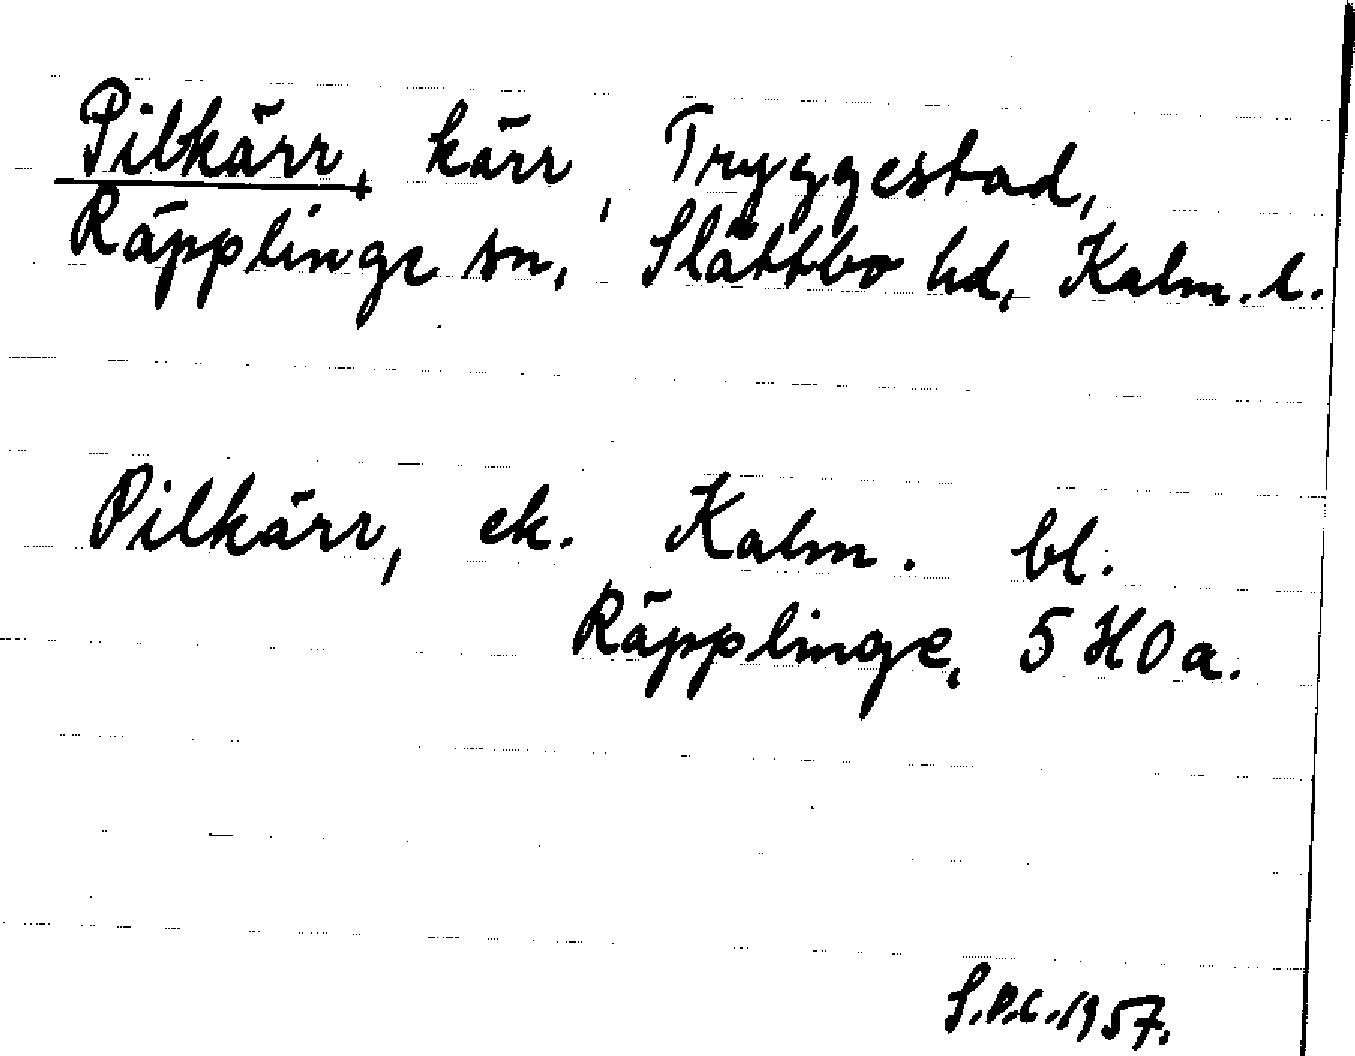 Pilkärr, kärr, Tryggestad,
Räpplinge sn, Slättbo hd, Kalm. l.
Pilkärr, ek. Kalm. bl.
Räpplinge, 5 H0a.
S.P.C. 1957.